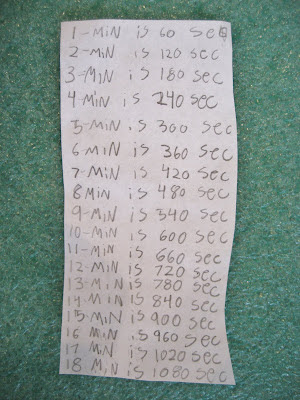 1-MIN is 60 SEC
2-MIN is 120 SEC
3-MIN is 180 SEC
4 MiN is 240 SEC
5-MIN is 300 SEC
6 MIN is 360 SEC
7-MIN is 420 SEC
8 MIN is 480 SEC
9-MIN is 340 SEC
10-MIN is 600 SEC
11-MIN is 660 SEC
12-MIN is 720 SEC
13-MIN is 780 SEC
14 MiN is 840 SEC
15-MiN is 900 SEC
16 MiN is 960 SEC
17 MiN is 1020 SEC
18 MiN is 1080 SEC